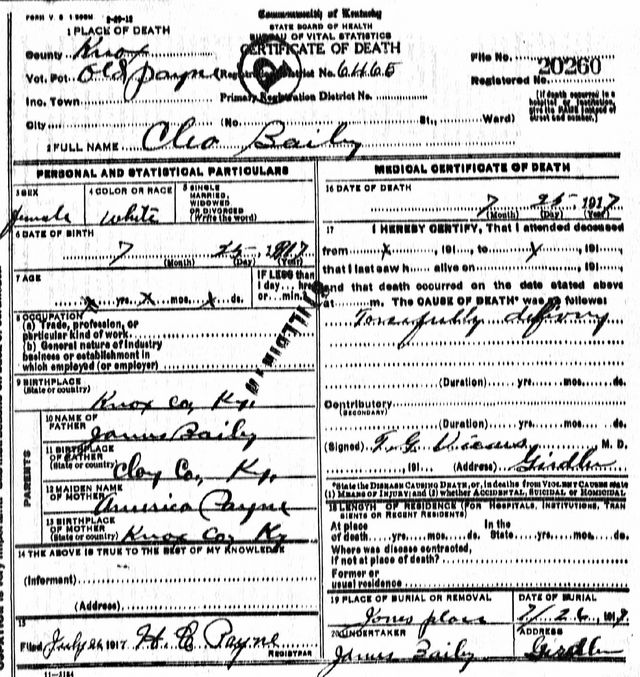 FORM V. S.
Commonwealth of Kentucky
STATE BOARD OF HEALTH
BUREAU OF VITAL STATISTICS
CERTIFICATE OF DEATH
1 PLACE OF DEATH
County Knox
Vot. Pct. Old Payne (Registration District No. 6465
Inc. Town Primary Registration District No.
City (No. St., Ward)
File No. 20260
Registered No.
(If death occurred in a
hospital or institution,
give its NAME instead of
street and number.)
2 FULL NAME Cleo Baily
PERSONAL AND STATISTICAL PARTICULARS
3 SEX
female
4 COLOR OR RACE
White
5 SINGLE
MARRIED,
WIDOWED
OR DIVORCED
(Write the word)
6 DATE OF BIRTH
7 25 1917
(Month) (Day) (Year)
7 AGE
x yrs. x mos. x ds.
IF LESS than
1 day... hrs
or... min.
8 OCCUPATION
(a) Trade, profession, or
particular kind of work
(b) General nature of industry
business or establishment in
which employed (or employer)
9 BIRTHPLACE
(State or country)
Knox Co, Ky.
PARENTS
10 NAME OF
FATHER
James Baily
11 BIRTHPLACE
OF FATHER
(State or country)
Clay Co, Ky.
12 MAIDEN NAME
OF MOTHER
America Payne
13 BIRTHPLACE
OF MOTHER
(State or country)
Knox Co, Ky
14 THE ABOVE IS TRUE TO THE BEST OF MY KNOWLEDGE
(Informant)
(Address)
15
Filed July 26, 1917 H C Payne
REGISTRAR
11-3184
MEDICAL CERTIFICATE OF DEATH
16 DATE OF DEATH
7 25 1917
(Month) (Day) (Year)
17 I HEREBY CERTIFY, That I attended deceased
from x, 191..., to x, 191...
that I last saw h... alive on, 191...,
and that death occurred on the date stated above
at... m. The CAUSE OF DEATH* was as follows:
(Duration) yrs. mos. ds.
Contributory
(SECONDARY)
(Duration) yrs. mos. ds.
(Signed) T. G. M. D.
, 191... (Address) Girdler
*State the DISEASE CAUSING DEATH, or, in deaths from VIOLENT CAUSES state
(1) MEANS OF INJURY; and (2) whether ACCIDENTAL, SUICIDAL or HOMICIDAL
18 LENGTH OF RESIDENCE (FOR HOSPITALS, INSTITUTIONS, TRAN
SIENTS OR RECENT RESIDENTS)
At place In the
of death yrs. mos. ds. State yrs. mos. ds.
Where was disease contracted,
if not at place of death?
Former or
usual residence
19 PLACE OF BURIAL OR REMOVAL
Jones place
DATE OF BURIAL
7/26, 1917
20 UNDERTAKER
James Baily
ADDRESS
Girdler